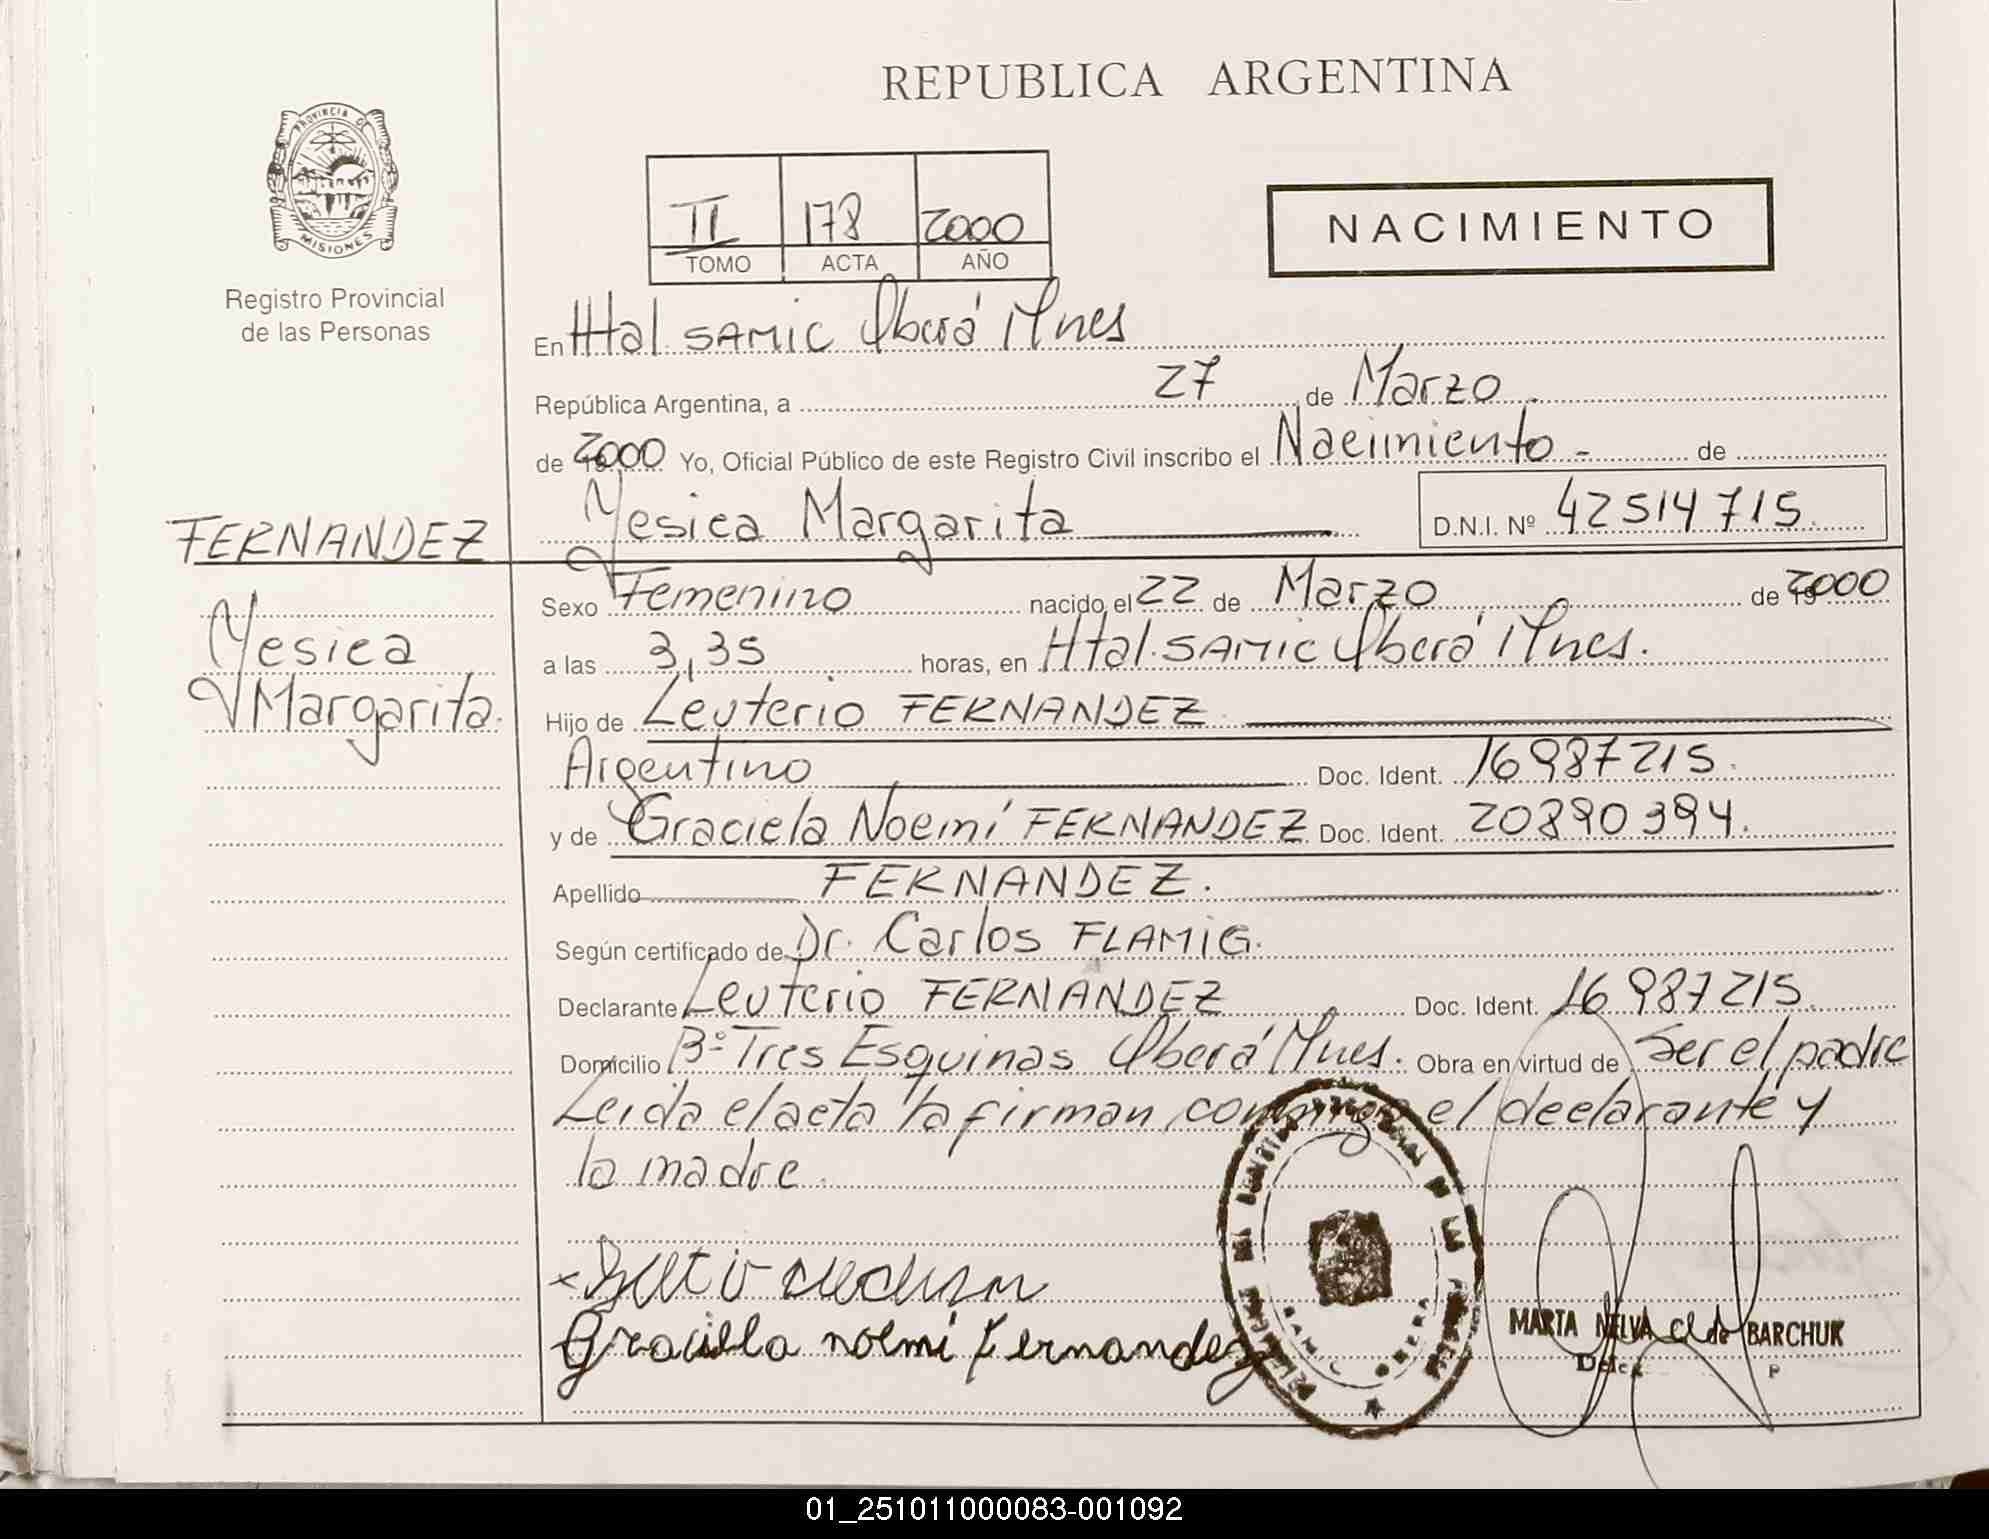 REPUBLICA ARGENTINA
PROVINCIA DE
MISIONES
Registro Provincial
de las Personas
II 178 2000
TOMO ACTA AÑO
NACIMIENTO
En Htal SAMIC Oberá Mnes
República Argentina, a 27 de Marzo
de 2000 Yo, Oficial Público de este Registro Civil inscribo el Nacimiento - de
Yesica Margarita D.N.I. Nº 42514715.
FERNANDEZ
Yesica
Margarita.
Sexo Femenino nacido el 22 de Marzo de 2000
a las 3,35 horas, en Htal. SAMIC Oberá Mnes.
Hijo de Leuterio FERNANDEZ
Argentino Doc. Ident. 16987215.
y de Graciela Noemí FERNANDEZ Doc. Ident. 20890394.
Apellido FERNANDEZ.
Según certificado de Dr. Carlos FLAMIG.
Declarante Leuterio FERNANDEZ Doc. Ident. 16987215.
Domicilio Bº Tres Esquinas Oberá Mnes. Obra en virtud de Ser el padre
Leida el acta la firman conmigo el declarante y
la madre.
Graciela noemi Fernandez
MARTA NELVA C. de BARCHUK
01_251011000083-001092